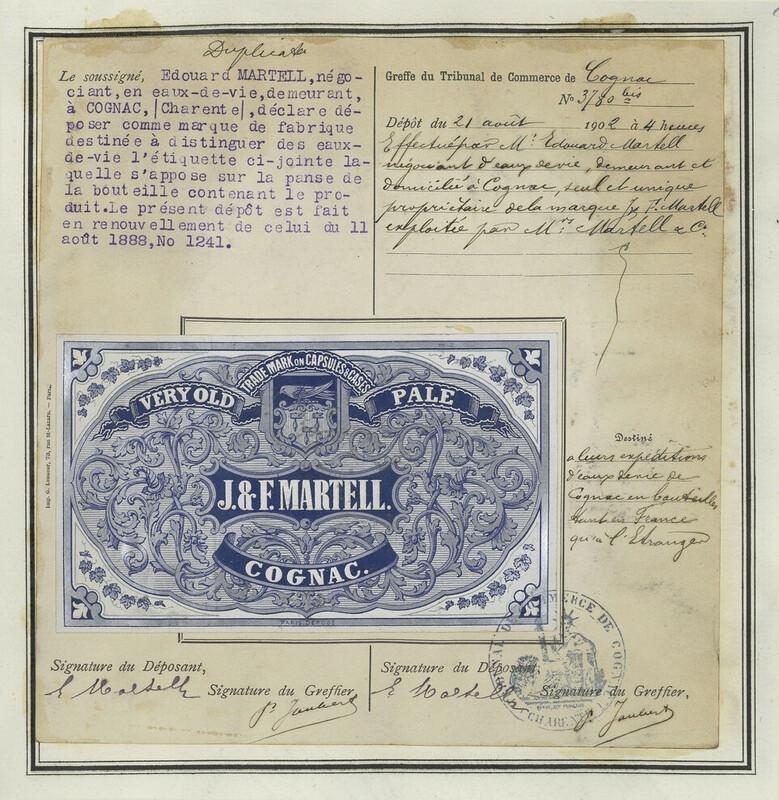 Duplicata
Le soussigné, Edouard MARTELL, négo-
ciant, en eaux-de-vie, demeurant,
à COGNAC, |Charente|, déclare dé-
poser comme marque de fabrique
destinée à distinguer des eaux-
de-vie l'étiquette ci-jointe la-
quelle s'appose sur la panse de
la bouteille contenant le pro-
duit. Le présent dépôt est fait
en renouvellement de celui du 11
août 1888, No 1241.
Greffe du Tribunal de Commerce de Cognac
No 3780 bis
Dépôt du 21 août 1902 à 4 heures
Effectué par Mr Edouard Martell
négociant d'eaux de vie, demeurant et
domicilié à Cognac, seul et unique
propriétaire de la marque J. & F. Martell
exploitée par Mrs Martell & Co
TRADE MARK ON CAPSULES & CASES
VERY OLD PALE
J. & F. MARTELL.
COGNAC.
PARIS DEPOSÉ
Imp. G. Lesueur, 73, rue St-Lazare. — Paris.
Destiné
à leurs expéditions
d'eaux de vie de
Cognac en bouteilles
tant en France
qu'à l'Etranger
TRIBUNAL DE COMMERCE DE COGNAC
CHARENTE
Signature du Déposant,
E Martell
Signature du Greffier,
P. Joubert
Signature du Déposant,
E Martell
Signature du Greffier,
P. Joubert